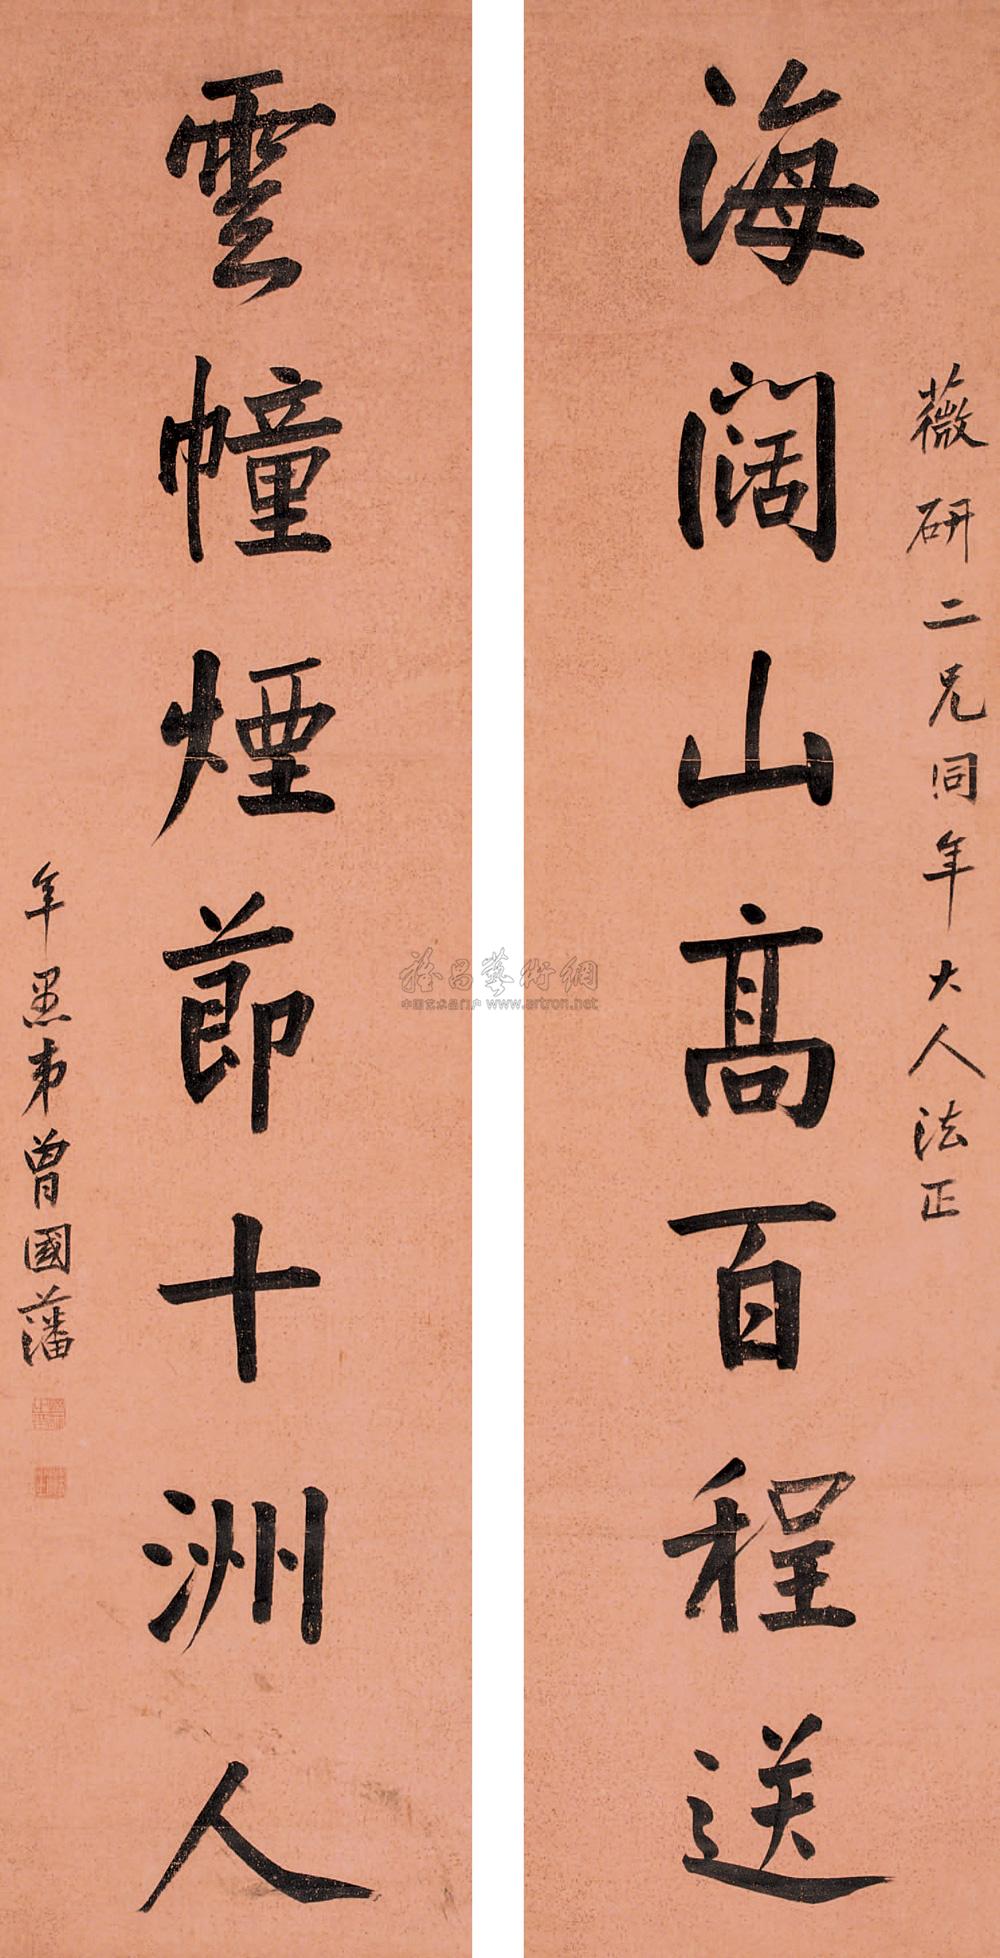 薇研二兄同年大人法正
海闊山高百程送
雲幢煙節十洲人
年愚弟曾國藩
雅昌藝術網
中国艺术品门户 www.artron.net